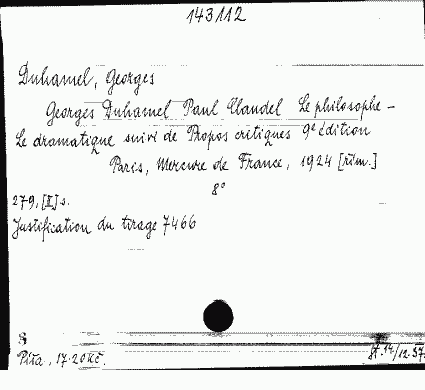 143112
Duhamel, Georges
Georges Duhamel Paul Claudel Le philosophe -
Le dramatique suivi de Propos critiques 9e édition
Paris, Mercure de France, 1924 [řím.]
8°
279, [II] s.
Justification du tirage 7466
8
17.20 Kčs.
12.57